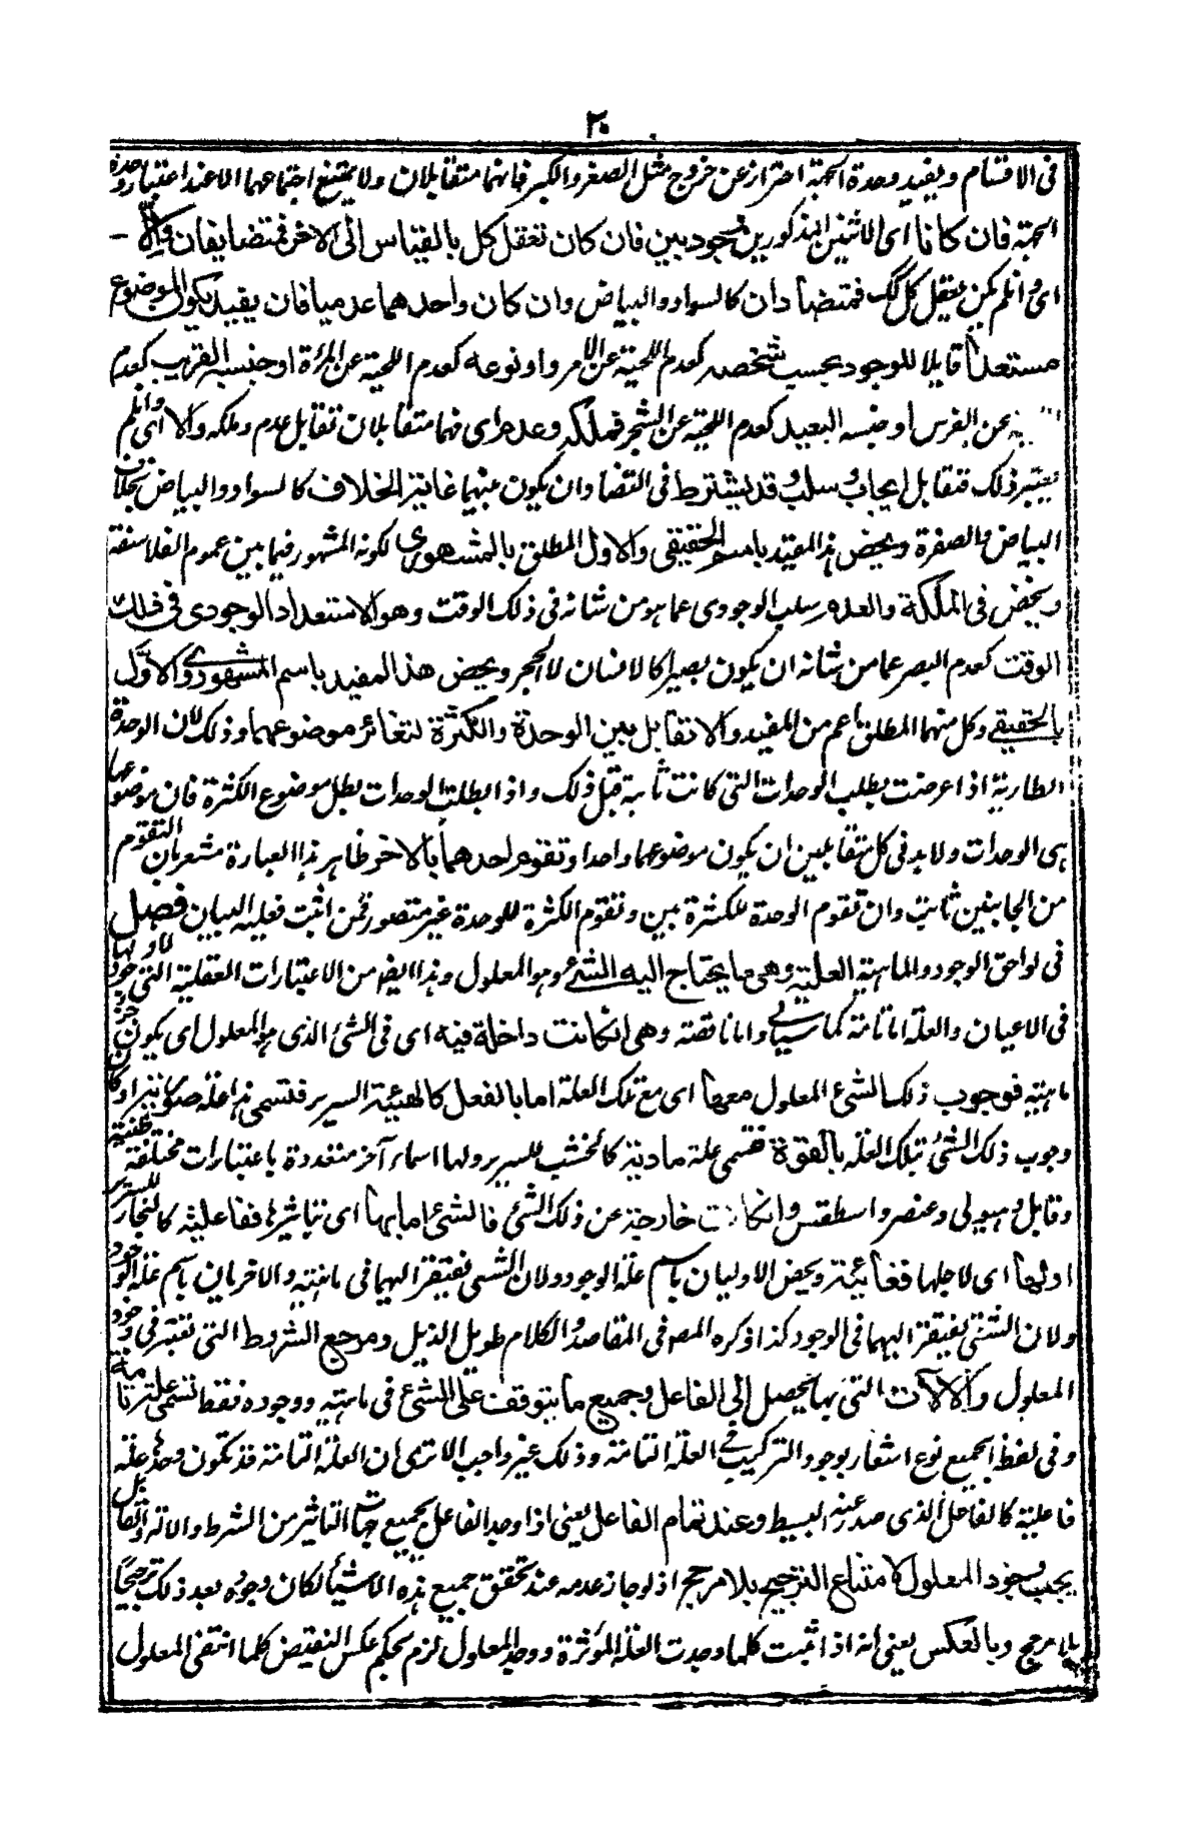 ٣٠
فى الاقسام ويفيد وحدة الجهة احتراز عن خروج مثل الصغر والكبر فانهما متقابلان ولا يمتنع اجتماعهما الا عند اعتبار وحدة
الجهة فان كانا اى الاثنين المذكورين وجوديين فان كان تعقل كل بالقياس الى الاخر فمتضايفان والا -
اى وانلم يكن يعقل كل كك فمتضادان كالسواد والبياض وان كان واحدهما عدميا فان يقيد بكون الموضوع
مستعدا قابلا للوجود بحسب شخصه كعدم اللحية عن الامرد او نوعه كعدم اللحية عن المرأة او جنسه القريب كعدم
عن الفرس او جنسه البعيد كعدم اللحية عن الشجر فملكة وعدم اى فهما متقابلان تقابل عدم وملكه والا اى وانلم
يعتبر ذلك فتقابل ايجاب وسلب وقد يشترط فى التضاد ان يكون بينهما غاية الخلاف كالسواد والبياض بخلاف
البياض والصفرة ويخص هذا المقيد باسم الحقيقى والاول المطلق بالمشهورى لكونه المشهور فيما بين عموم الفلاسفة
ويخص فى الملكة والعدم سلب الوجودى عما هو من شانه فى ذلك الوقت وهو الاستعداد الوجودى فى ذلك
الوقت كعدم البصر عما من شانه ان يكون بصيرا كالانسان لا الحجر ويخص هذا المقيد باسم المشهورى والاول
بالحقيقى وكل منهما المطلق اعم من المقيد ولا تقابل بين الوحدة والكثرة لتغائر موضوعهما وذلك لان الوحدة
الطارية اذا عرضت بطلب الوحدات التى كانت ثابتة قبل ذلك واذا بطلت الوحدات بطل موضوع الكثرة فان موضوعها
هى الوحدات ولا بد فى كل متقابلين ان يكون موضوعهما واحدا وتقوم احدهما بالاخر ظاهر هذا العبارة مشعر بان التقوم
من الجانبين ثابت وان تقوم الوحدة للكثرة بين وتقوم الكثرة للوحدة غير متصور فمن اثبت فعليه البيان فصل
فى لواحق الوجود والماهية العلية وهى ما يحتاج اليه الشئ وهو المعلول وهذا ايضا من الاعتبارات العقلية التى لا وجود لها
فى الاعيان والعلة اما تامة كما سياتى واما ناقصة وهى انكانت داخلة فيه اى فى الشئ الذى هو المعلول اى يكون جزء
ماهيته فوجوب ذلك الشئ المعلول معها اى مع تلك العلة اما بالفعل كالهيئة السرير فتسمى هذا علة صورية او كان
وجوب ذلك الشئ بتلك العلة بالقوة فتسمى علة مادية كالخشب للسرير ولها اسماء آخر متعددة باعتبارات مختلفة
وقابل وهيولى وعنصر واسطقس وانكانت خارجة عن ذلك الشئ فالشئ اما بها اى بتاثيرها ففاعلية كالنجار للسرير
او لها اى لاجلها فغائية ويخص الاوليان باسم علة الوجود ولان الشئ يفتقر اليهما فى ماهيته والاخريان باسم علة الوجود
ولان الشئ يفتقر اليهما فى الوجود كذا ذكره المصـ فى المقاصد والكلام طويل الذيل ومرجع الشروط التى تعتبر فى وجود
المعلول والآلات التى بها يحصل الى الفاعل وجميع ما يتوقف على الشئ فى ماهيته ووجوده فقط تسمى علة تامة
وفى لفظ الجميع نوع اشعار بوجود التركيب فى العلة التامة وذلك غير واجب الا ترى ان العلة التامة قد تكون وحدها علة
فاعلية كالفاعل الذى صدر عنه البسيط وعند تمام الفاعل يعنى اذا وجد الفاعل بجميع جهات التاثير من الشرط والالة والقابل
يجب وجود المعلول لامتناع الترجيح بلا مرجح اذ لو جاز عدمه عند تحقق جميع هذه الاشياء لكان وجوده بعد ذلك ترجيحا
بلا مرجح وبالعكس يعنى انه اذا ثبت كلما وجدت العلة المؤثرة ووجد المعلول لزم بحكم عكس النقيض كلما انتفى المعلول